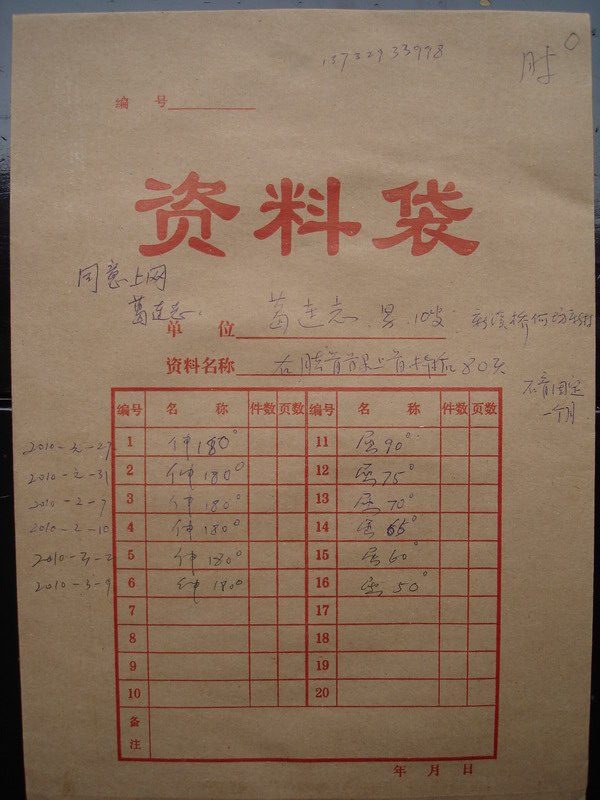 15732933998
肘
编 号
资料袋
同意上网
葛连志.
单 位 葛连志.男.10岁
资料名称 右肱骨骨果上骨折术后80天
石膏固定
一个月
编号 名 称 件数 页数 编号 名 称 件数 页数
2010-元-27 1 伸180° 11 屈90°
2010-元-31 2 伸180° 12 屈75°
2010-2-7 3 伸180° 13 屈70°
2010-2-10 4 伸180° 14 屈65°
2010-3-2 5 伸180° 15 屈60°
2010-3-9 6 伸180° 16 屈50°
7 17
8 18
9 19
10 20
备注
年 月 日